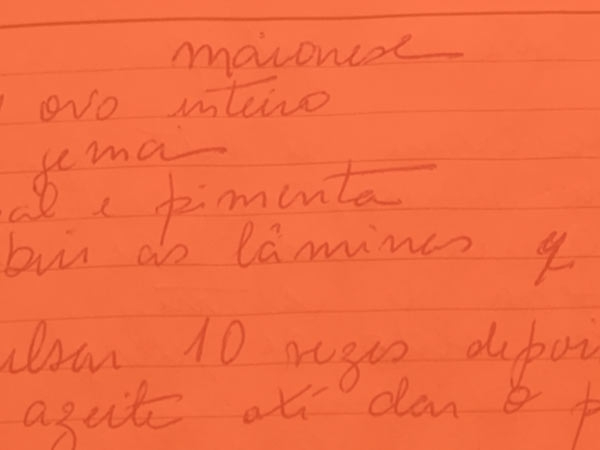 maionese
ovo inteiro
gema
sal e pimenta
as lâminas q
pulsar 10 vezes depois
azeite até dar o p